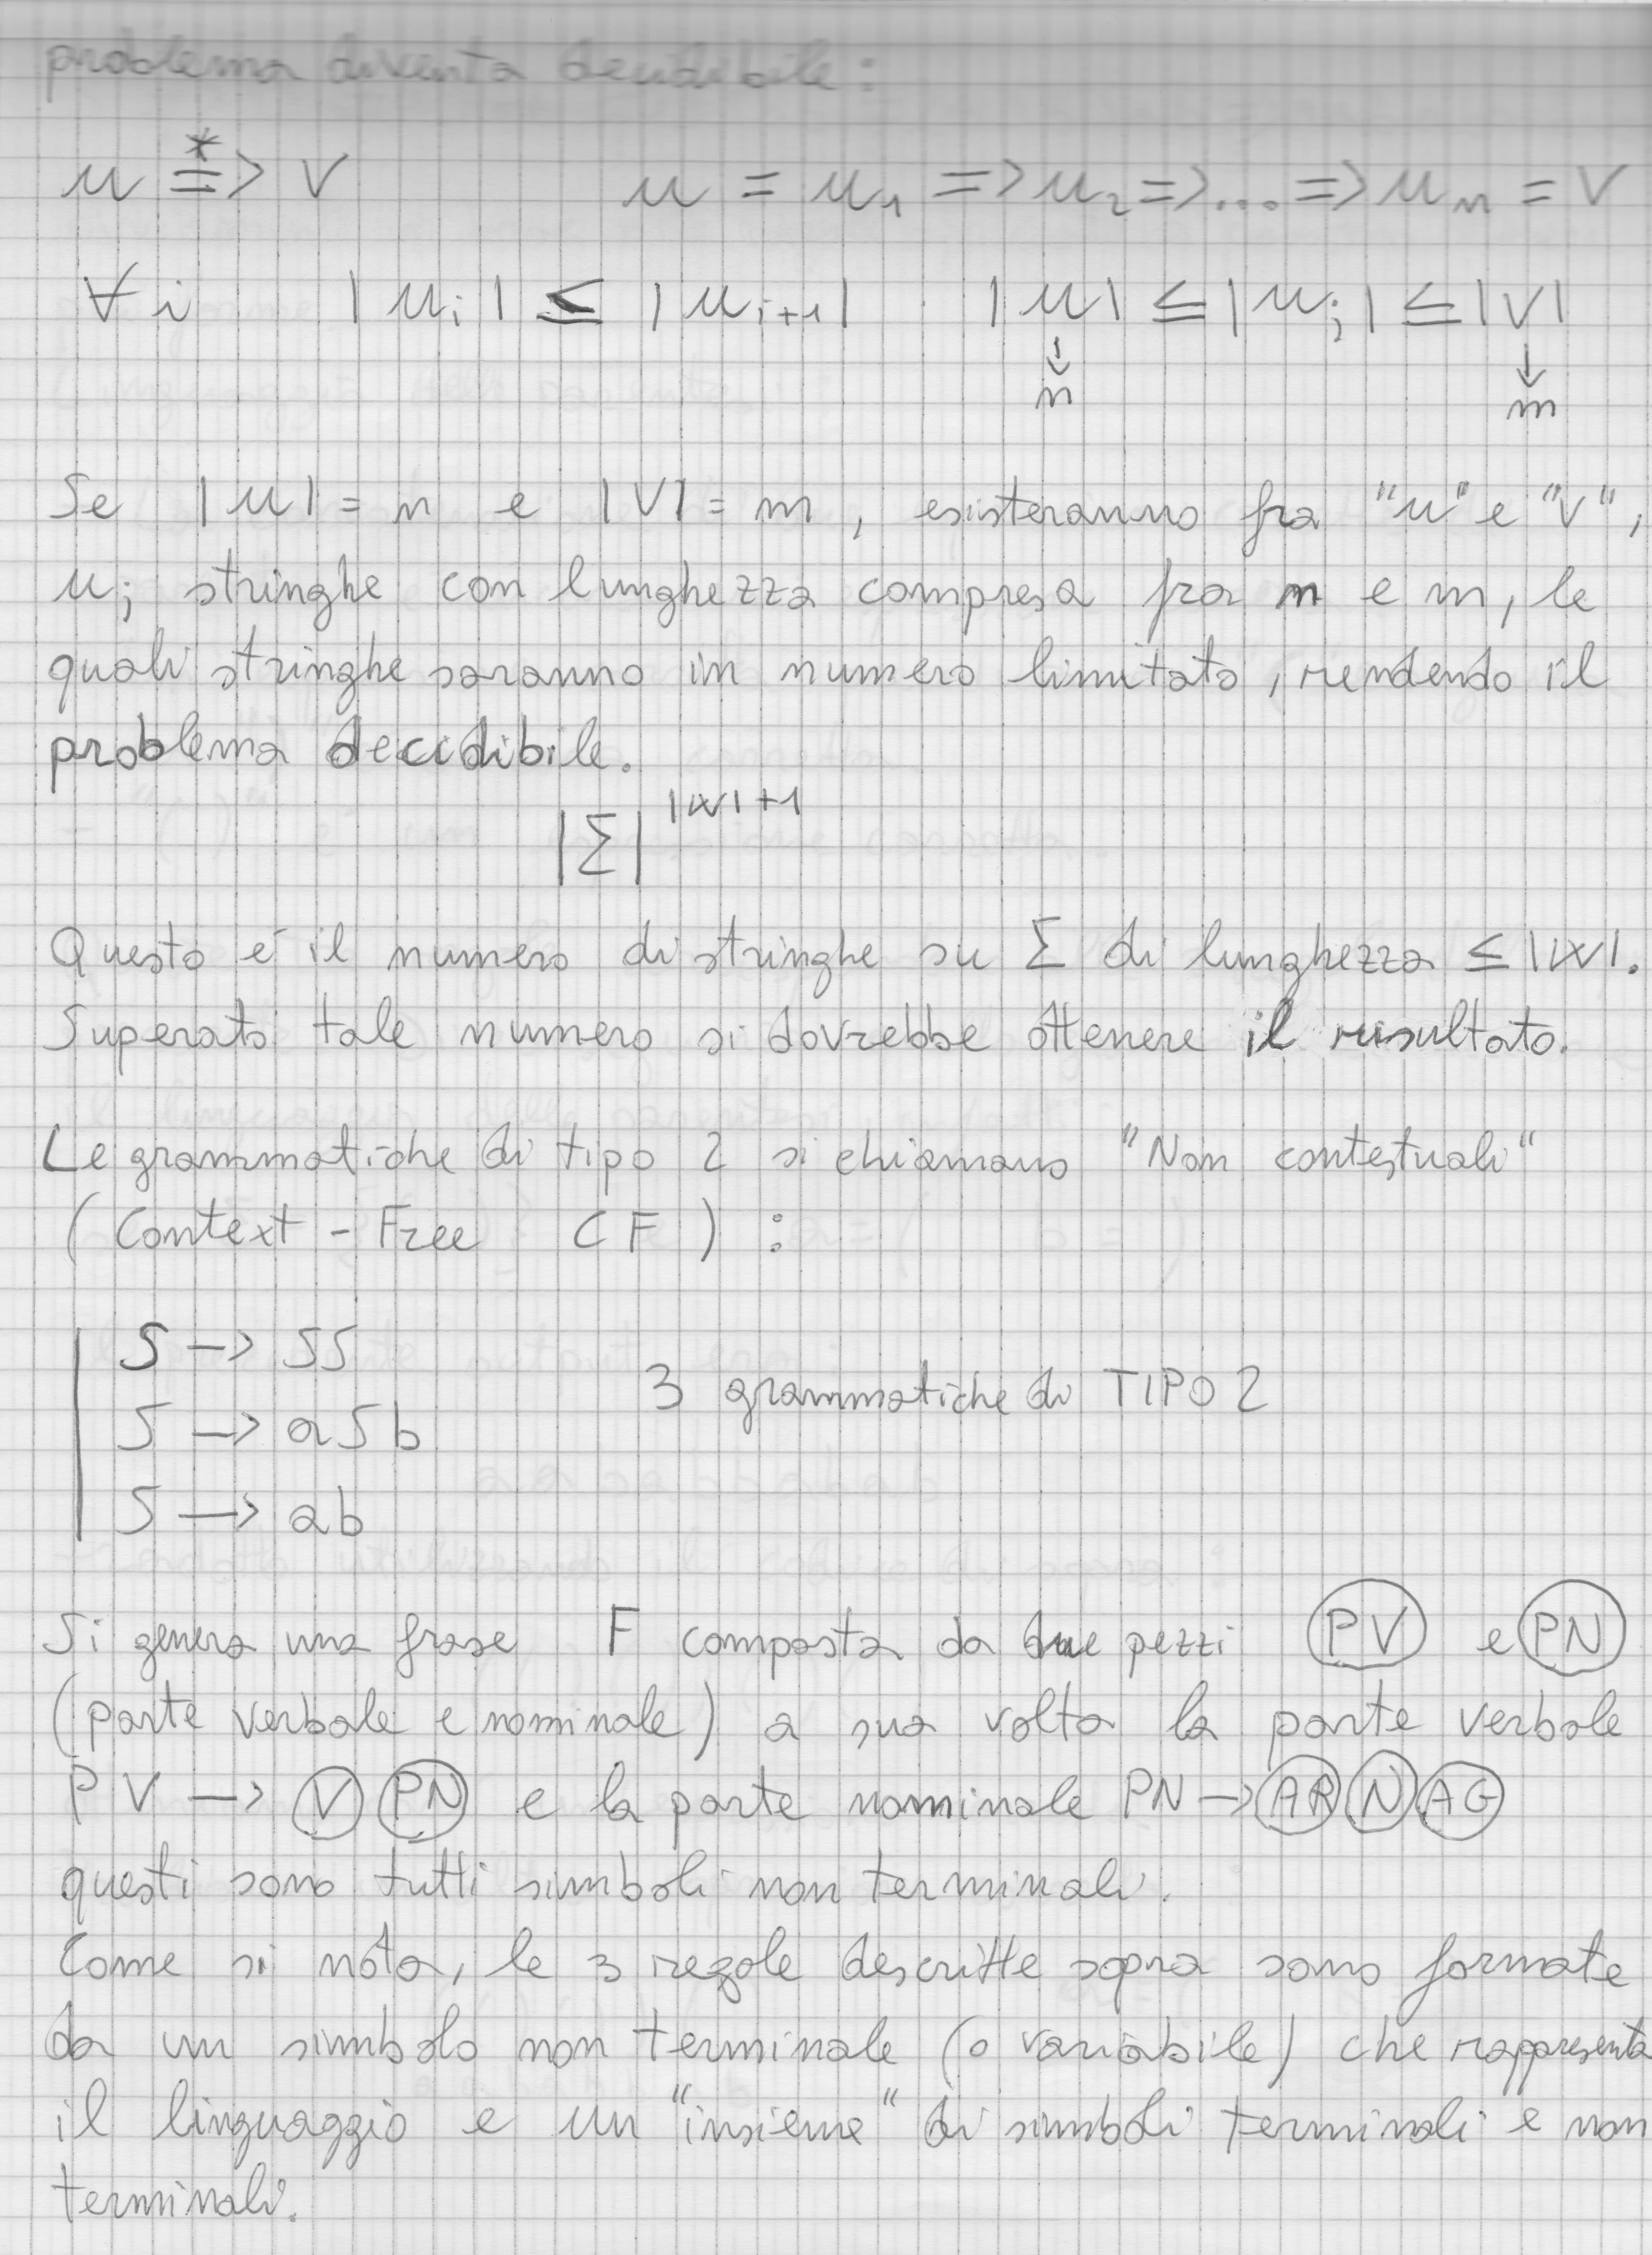 problema diventa decidibile:
u *=> V u = u1 => u2 => ... => um = V
∀ i |ui| ≤ |ui+1| |u| ≤ |uj| ≤ |V|
↓ ↓
n m
Se |u| = n e |V| = m, esisteranno fra "u" e "V",
uj stringhe con lunghezza compresa fra n e m, le
quali stringhe saranno in numero limitato, rendendo il
problema decidibile.
|Σ| |w|+1
Questo é il numero di stringhe su Σ di lunghezza ≤ |w|.
Superato tale numero si dovrebbe ottenere il risultato.
Le grammatiche di tipo 2 si chiamano "Non contestuali"
(Context-Free CF):
S -> SS
3 grammatiche di TIPO 2
S -> aSb
S -> ab
Si genera una frase F composta da due pezzi PV e PN
(parte verbale e nominale) a sua volta la parte verbale
PV -> V PN e la parte nominale PN -> AR N AG
questi sono tutti simboli non terminali.
Come si nota, le 3 regole descritte sopra sono formate
da un simbolo non terminale (o variabile) che rappresenta
il linguaggio e un "insieme" di simboli terminali e non
terminali.